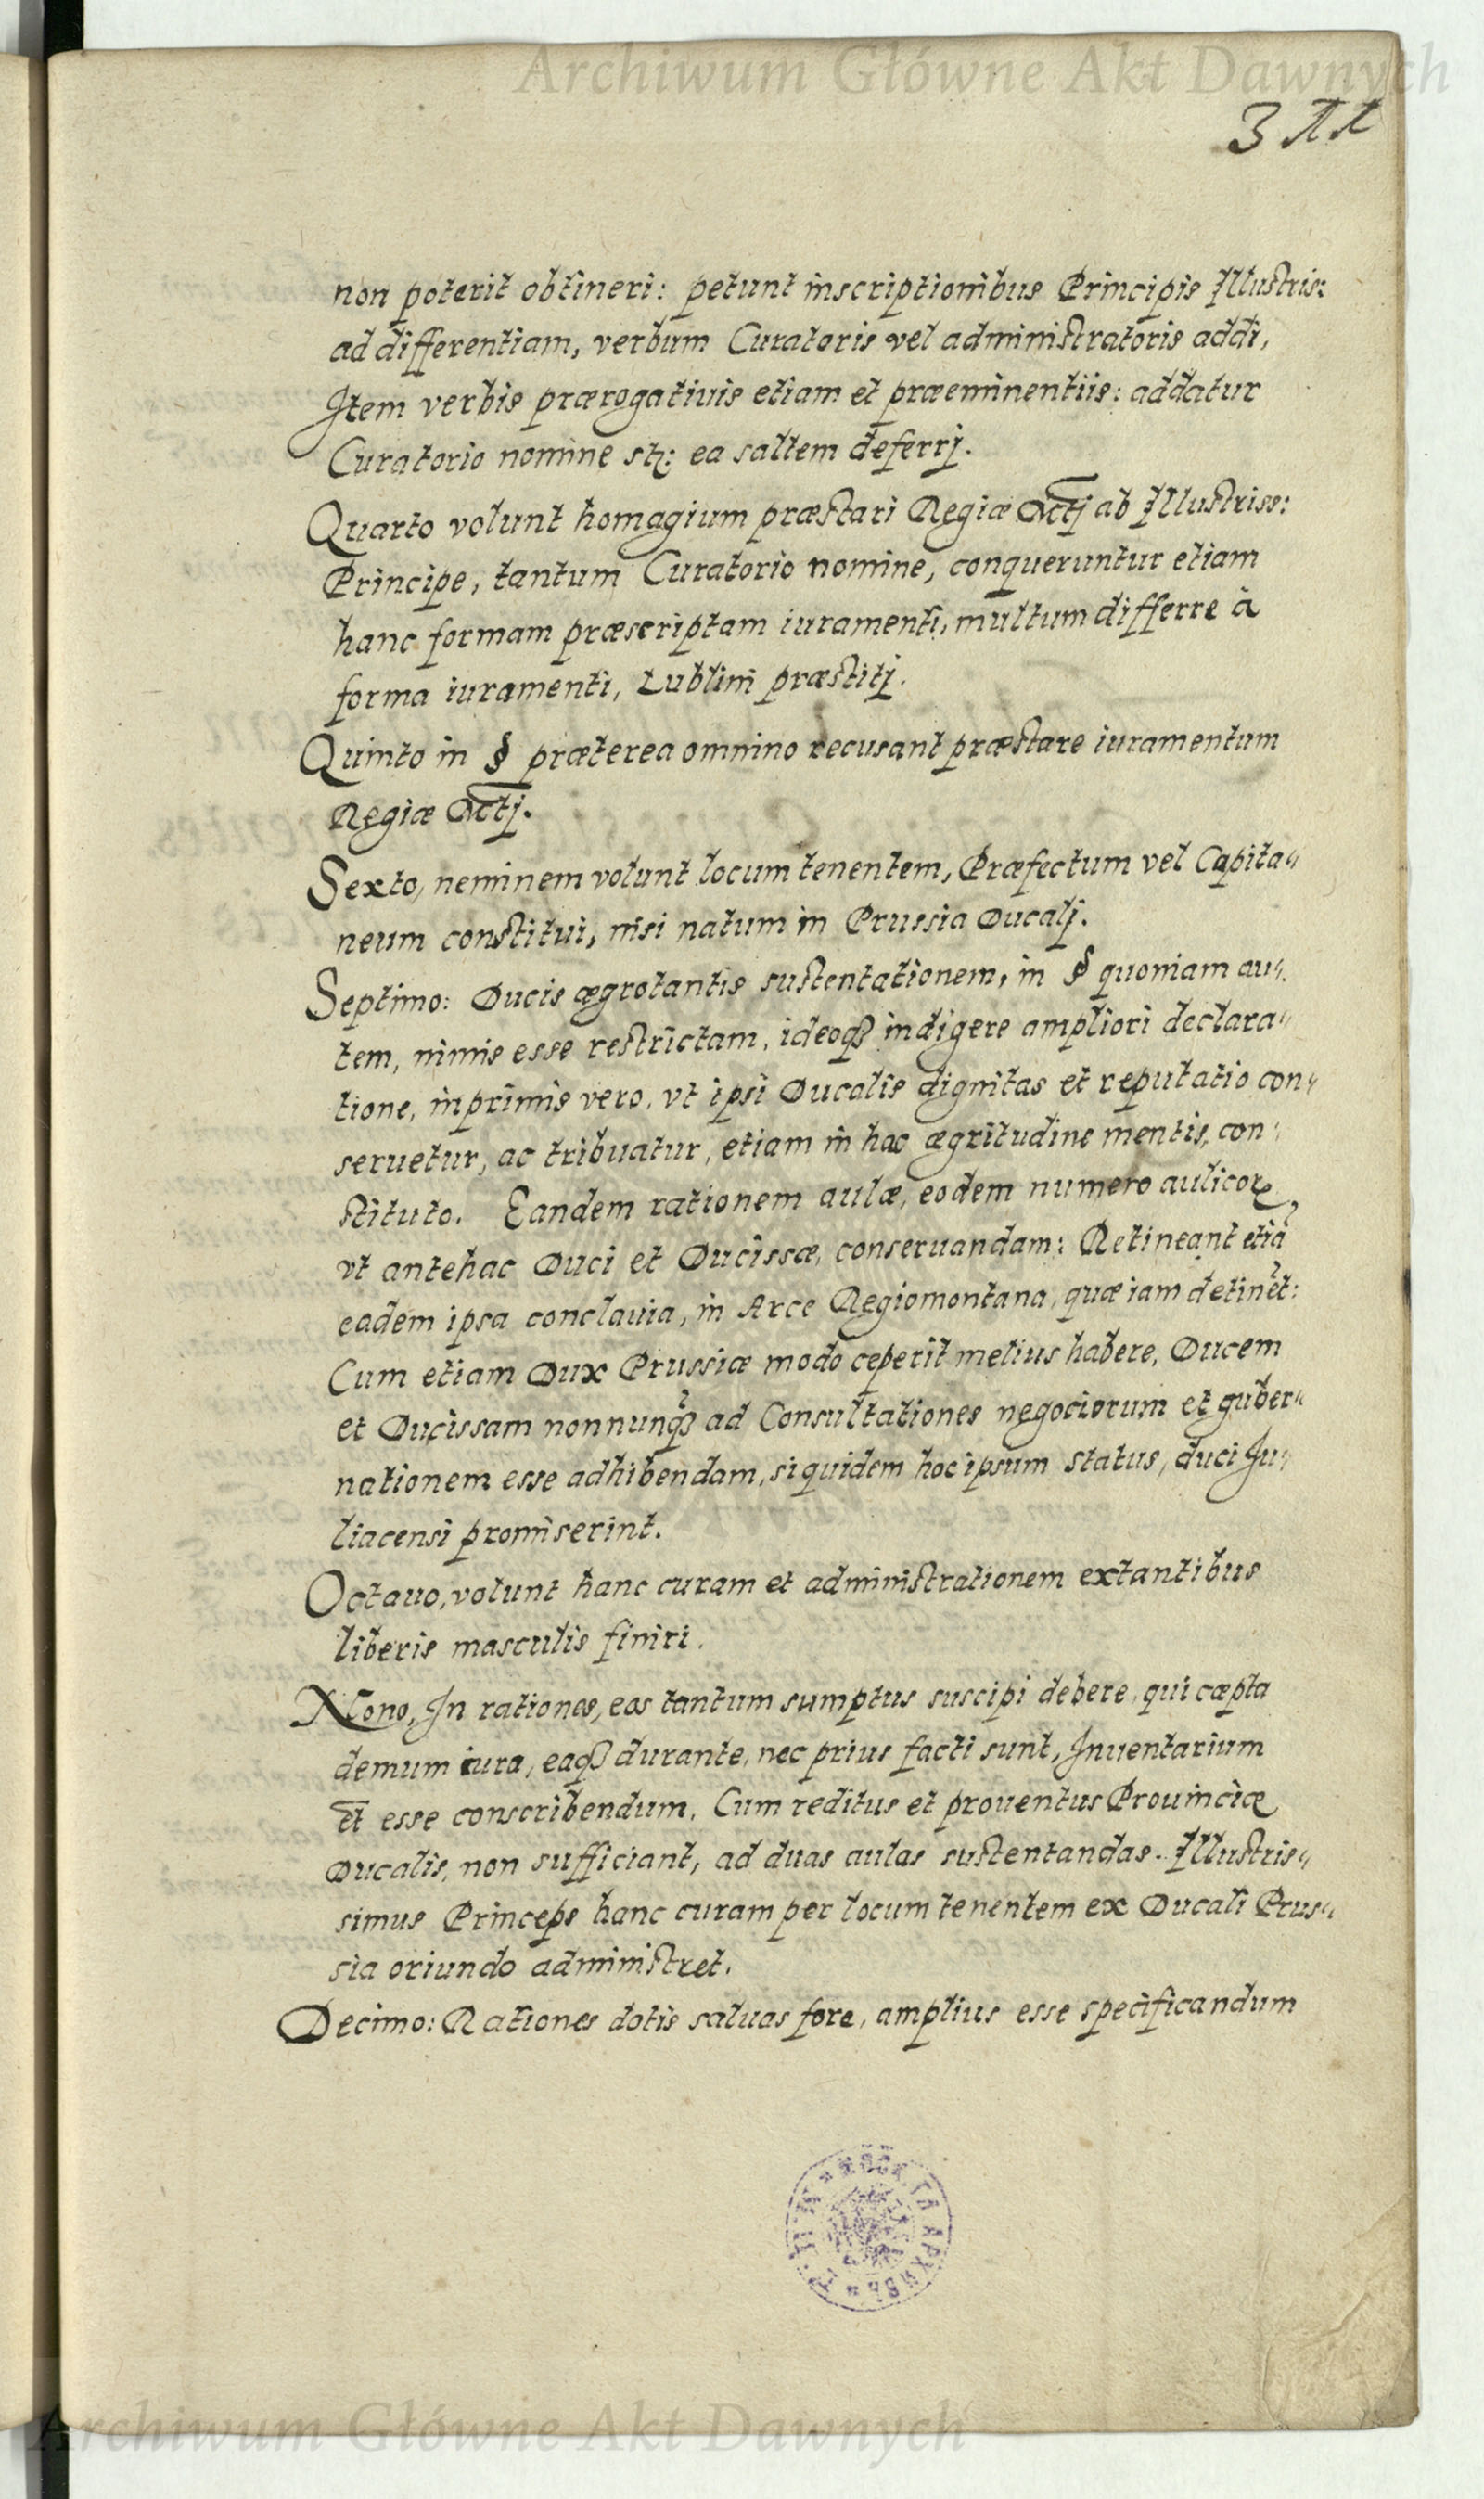 Archiwum Główne Akt Dawnych
311
non poterit obtineri: petunt inscriptionibus Principis Illustris:
ad differentiam, verbum Curatoris vel administratoris addi,
Item verbis prærogativis etiam et præeminentiis: addatur
Curatorio nomine stz: ea saltem deferrj.
Quarto volunt homagium præstari Regiæ Mctj ab Illustriss:
Principe, tantum Curatorio nomine, conqueruntur etiam
hanc formam præscriptam iuramenti, multum differre à
forma iuramenti, Lublini præstitj.
Quinto in § præterea omnino recusant præstare iuramentum
Regiæ Mctj.
Sexto, neminem volunt locum tenentem, Præfectum vel Capita〃
neum constitui, nisi natum in Prussia Ducalj.
Septimo: Ducis ægrotantis sustentationem, in § quoniam au〃
tem, nimis esse restrictam, ideoqȝ indigere ampliori declara〃
tione, inprimis vero, vt ipsi Ducalis dignitas et reputatio con〃
seruetur, ac tribuatur, etiam in hac ægritudine mentis, con〃
stituto. Eandem rationem aulæ, eodem numero aulicoꝝ
vt antehac Duci et Ducissæ, conseruandam: Retineant etiã
eadem ipsa conclauia, in Arce Regiomontana, quæ iam detinẽt:
Cum etiam Dux Prussiæ modo ceperit melius habere, Ducem
et Ducissam nonnunqȝ̃ ad Consultationes negociorum et guber〃
nationem esse adhibendam, siquidem hoc ipsum status, duci Ju〃
liacensi promiserint.
Octauo, volunt hanc curam et administrationem extantibus
liberis masculis finiri.
Nono, In rationes, eos tantum sumptus suscipi debere, qui cæpta
demum cura, eaqȝ durante, nec prius facti sunt, Inuentarium
et esse conscribendum. Cum reditus et prouentus Prouinciæ
Ducalis, non sufficiant, ad duas aulas sustentandas. Illustris〃
simus Princeps hanc curam per locum tenentem ex Ducali Prus〃
sia oriundo administret.
Decimo: Rationes dotis saluas fore, amplius esse specificandum
Archiwum Główne Akt Dawnych